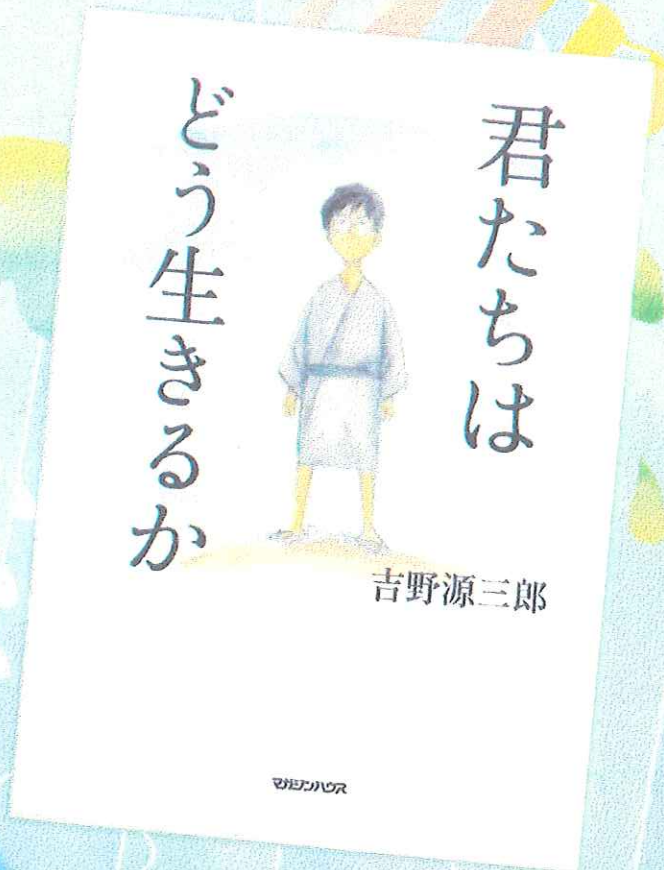 君たちは
どう生きるか
吉野源三郎
マガジンハウス